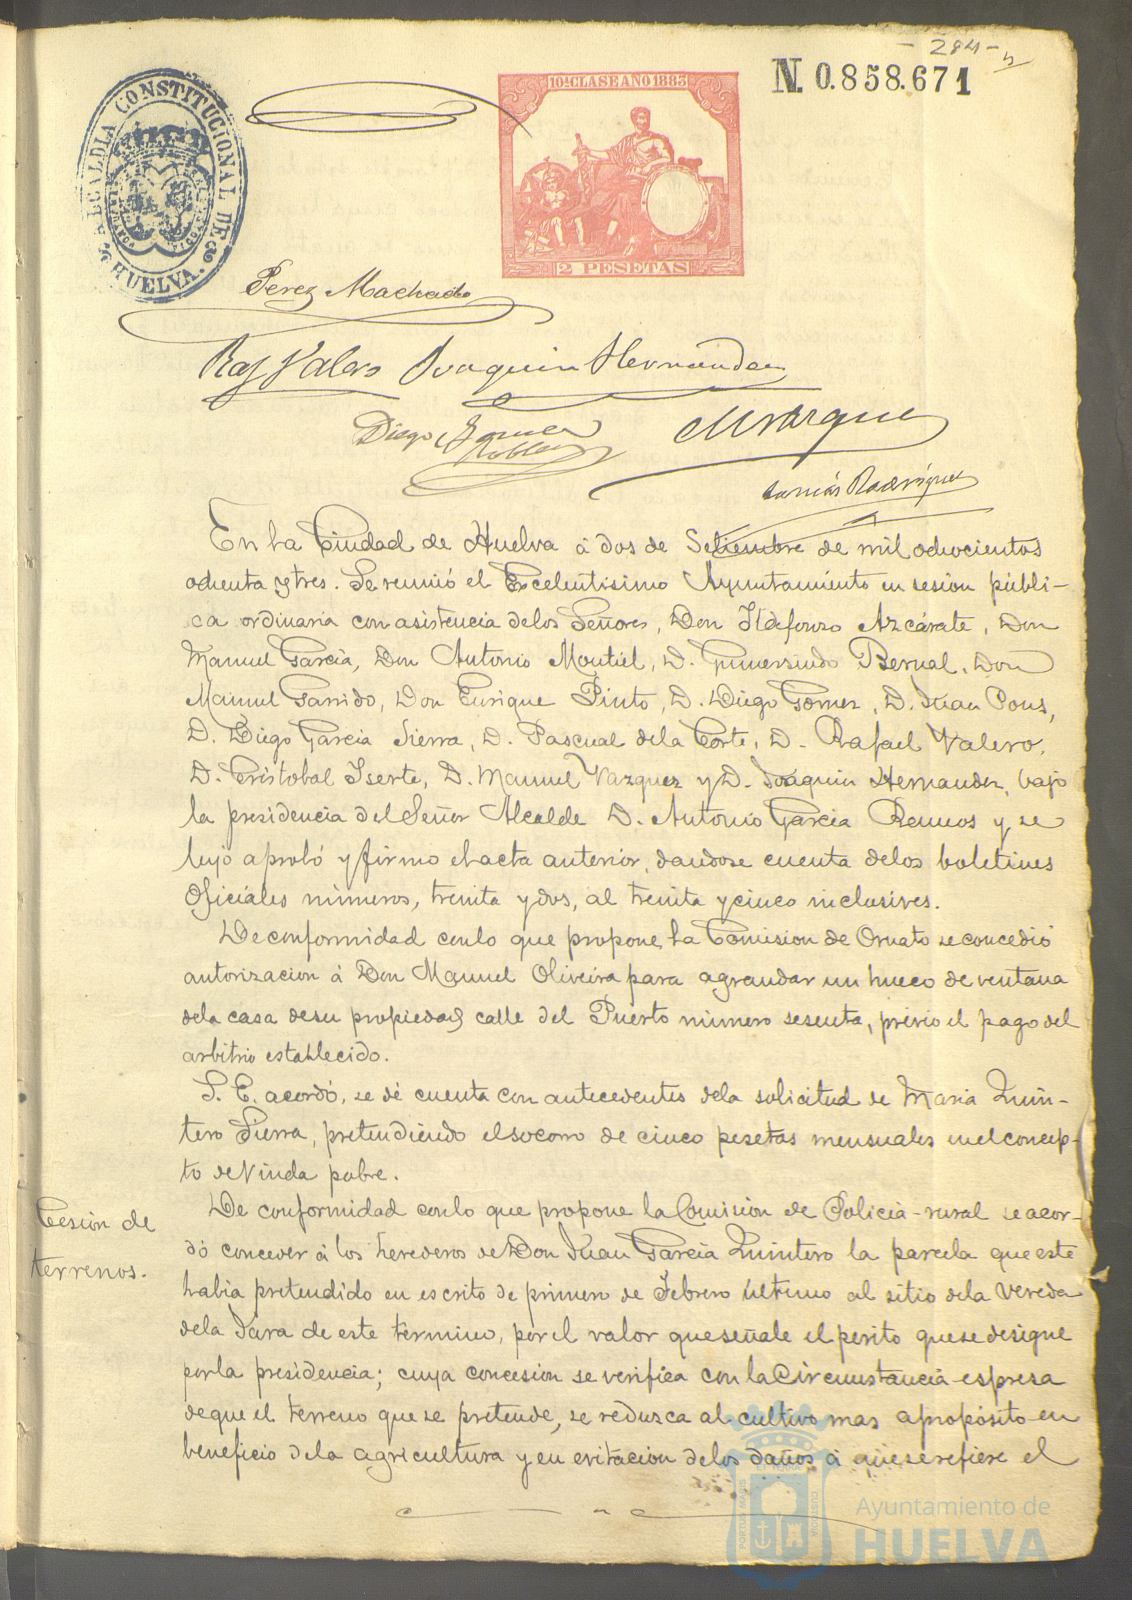 - 284 -
N. 0.858.671
10ª CLASE AÑO 1883
2 PESETAS
ALCALDIA CONSTITUCIONAL DE
HUELVA.
Perez Machado
Raf Valero Joaquin Hernandez
Diego Gomez
Robles
M Vazquez
Tomás Rodriguez
En la Ciudad de Huelva á dos de Setiembre de mil ochocientos
ochenta y tres. Se reunió el Excelentisimo Ayuntamiento en sesion públi-
ca ordinaria con asistencia de los Señores, Don Ildefonso Azcárate, Don
Manuel Garcia, Don Antonio Montiel, D. Gumersindo Bernal, Don
Manuel Garrido, Don Enrique Pinto, D. Diego Gomez, D. Juan Pons,
D. Diego Garcia Sierra, D. Pascual de la Corte, D. Rafael Valero,
D. Cristobal Iserte, D. Manuel Vazquez y D. Joaquin Hernandez, bajo
la presidencia del Señor Alcalde D. Antonio Garcia Ramos y se
leyó aprobó y firmo el acta anterior, dandose cuenta de los boletines
Oficiales números, treinta y dos, al treinta y cinco inclusives.
De conformidad con lo que propone la Comision de Ornato se concedió
autorizacion á Don Manuel Oliveira para agrandar un hueco de ventana
de la casa de su propiedad calle del Puerto número sesenta, previo el pago del
arbitrio establecido.
S. E. acordó, se dé cuenta con antecedentes de la solicitud de Maria Quin-
tero Sierra, pretendiendo el socorro de cinco pesetas mensuales en el concep-
to de Viuda pobre.
Cesion de
terrenos.
De conformidad con lo que propone la Comision de Policia-rural se acor-
dó conceder á los herederos de Don Juan Garcia Quintero la parcela que este
habia pretendido en escrito de primero de Febrero último al sitio de la Vereda
de la Jara de este termino, por el valor que señale el perito que se designe
por la presidencia; cuya concesion se verifica con la Circunstancia espresa
de que el terreno que se pretende, se reduzca al cultivo mas aproposito en
beneficio de la agricultura y en evitacion de los daños á que se refiere el
PORTUS MARIS
CUSTODIA
Ayuntamiento de
HUELVA